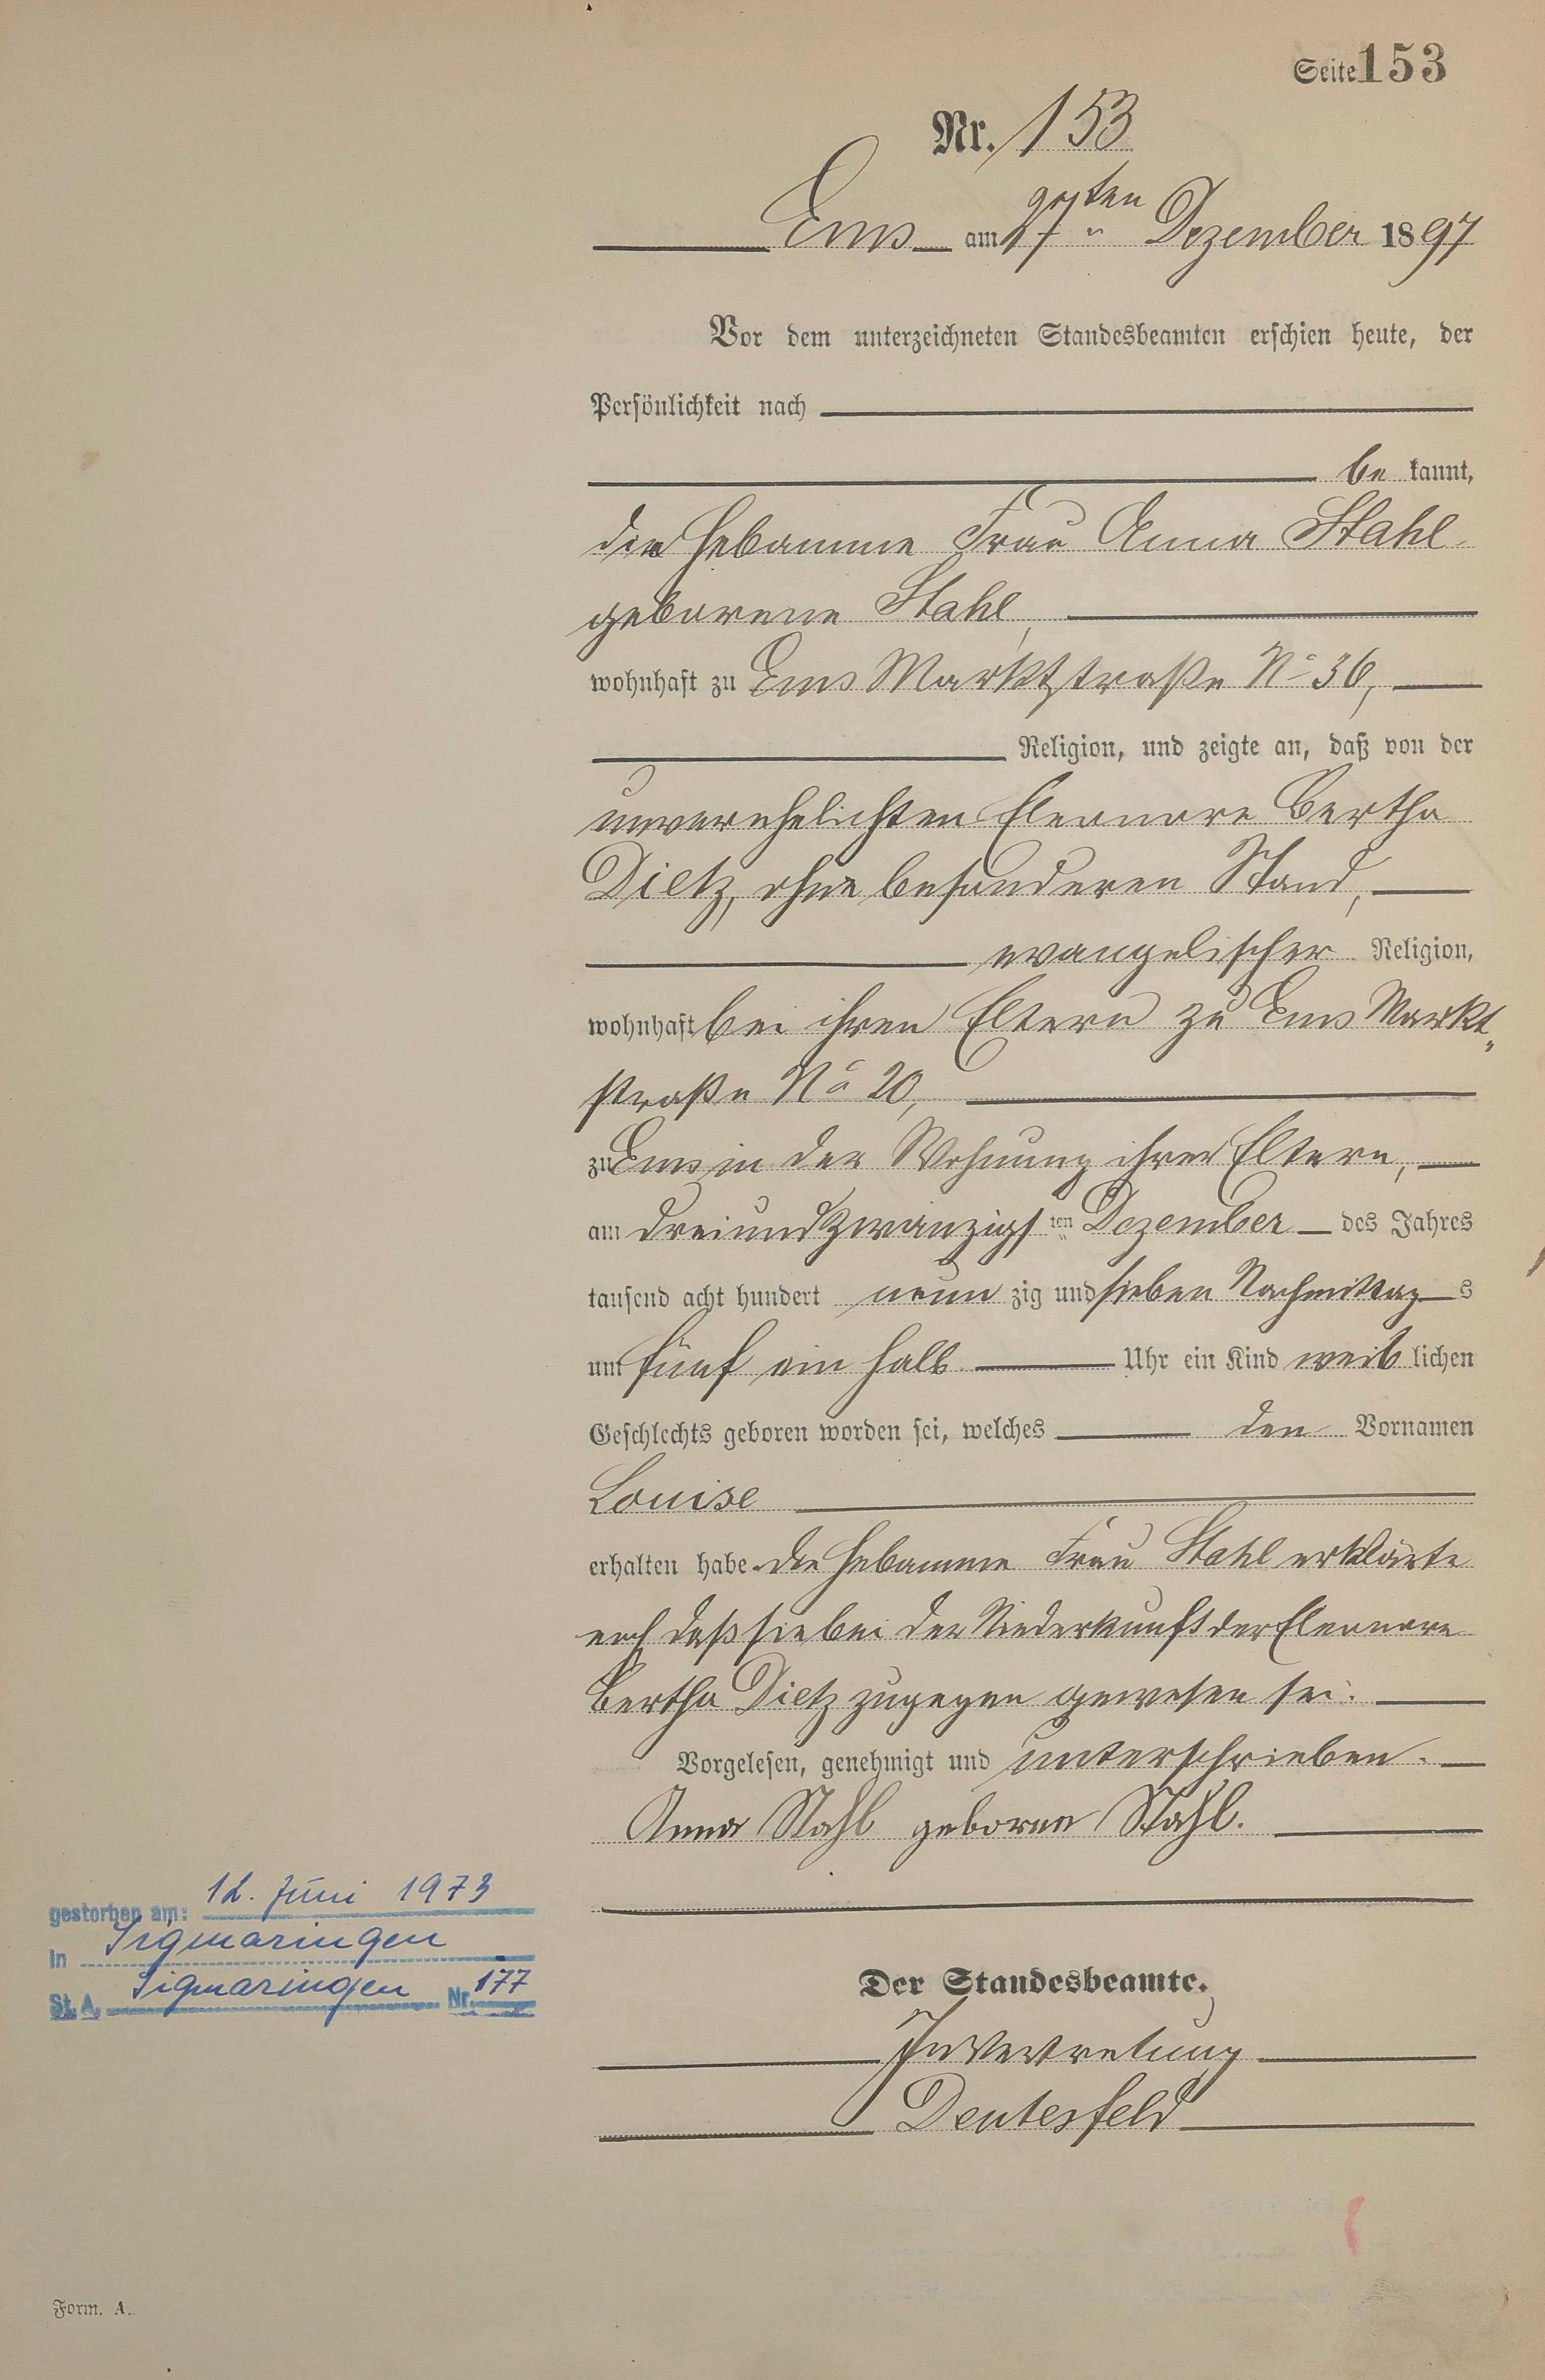 Seite 153
Nr. 153
Ems am 27ten Dezember 1897
Vor dem unterzeichneten Standesbeamten erschien heute, der
Persönlichkeit nach
be kannt,
die Hebamme Frau Anna Stahl
geborene Stahl,
wohnhaft zu Ems Marktstraße No 36,
Religion, und zeigte an, daß von der
unverehelichten Eleonore Bertha
Dietz, ohne besonderen Stand,
evangelischer Religion,
wohnhaft bei ihren Eltern zu Ems Markt„
straße No 20,
zu Ems in der Wohnung ihrer Eltern,
am dreiundzwanzigsten Dezember des Jahres
tausend acht hundert neun zig und sieben Nachmittags
um fünf ein halb Uhr ein Kind weib lichen
Geschlechts geboren worden sei, welches den Vornamen
Louise
erhalten habe. Die Hebamme Frau Stahl erklärte
noch daß sie bei der Niederkunft der Eleonore
Bertha Dietz zugegen gewesen sei.
Vorgelesen, genehmigt und unterschrieben.
Anna Stahl geborne Stahl.
gestorben am: 12. Juni 1973
in Sigmaringen
St. A. Sigmaringen Nr. 177
Der Standesbeamte.
In Vertretung
Deutesfeld
Form. A.